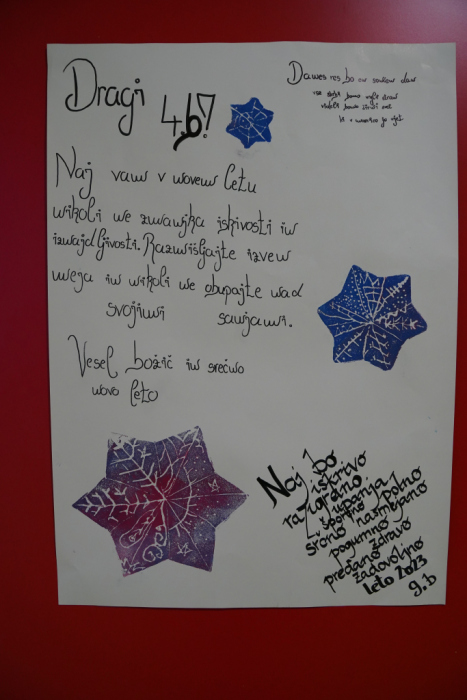 Dragi 4.b!
Danes res bo en sončen dan
Naj vam v novem letu
nikoli ne zmanjka iskivosti in
iznajdljivosti. Razmišljajte izven
meja in nikoli ne obupajte nad
svojimi sanjami.
Vesel božič in srečno
novo leto
Naj bo
iskrivo
razigrano
upanja polno
srčno nasmejano
pogumno
predano zdravo
zadovoljno
leto 2023
9.b